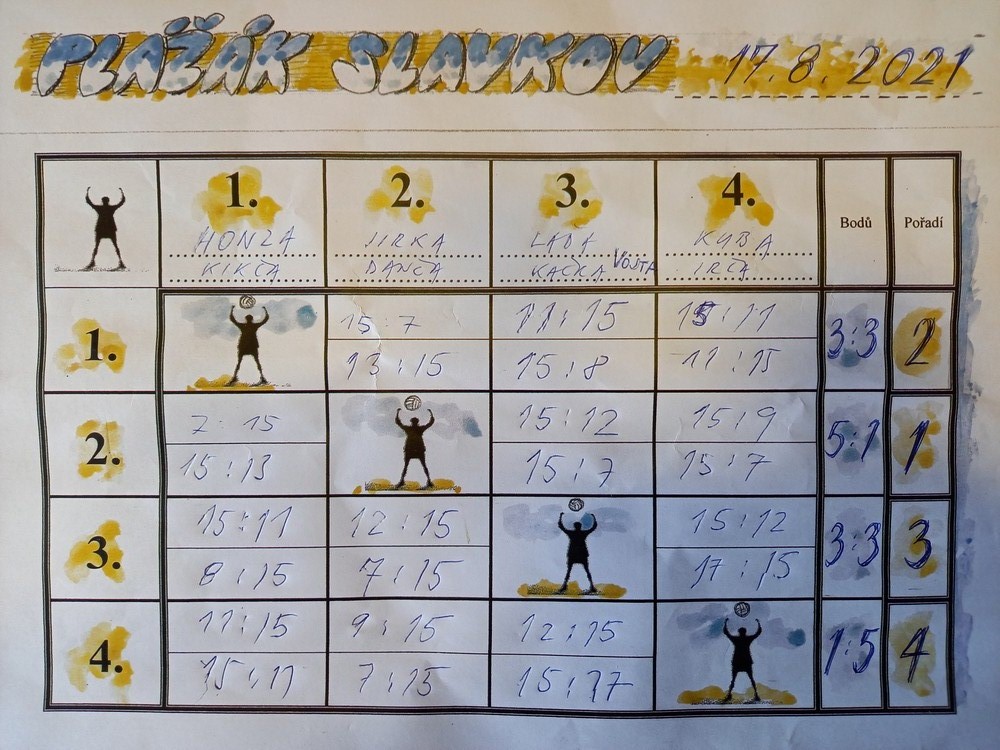 PLAŽÁK SLAVKOV 17.8.2021
1. 2. 3. 4. Bodů Pořadí
HONZA JIRKA LÁĎA KUBA
KIKČA DANČA KAČKA VOJTA IRČA
1. 15:7 11:15 15:11 3:3 2
13:15 15:8 11:15
2. 7:15 15:12 15:9 5:1 1
15:13 15:7 15:7
3. 15:11 12:15 15:12 3:3 3
8:15 7:15 17:15
4. 11:15 9:15 12:15 1:5 4
15:11 7:15 15:17